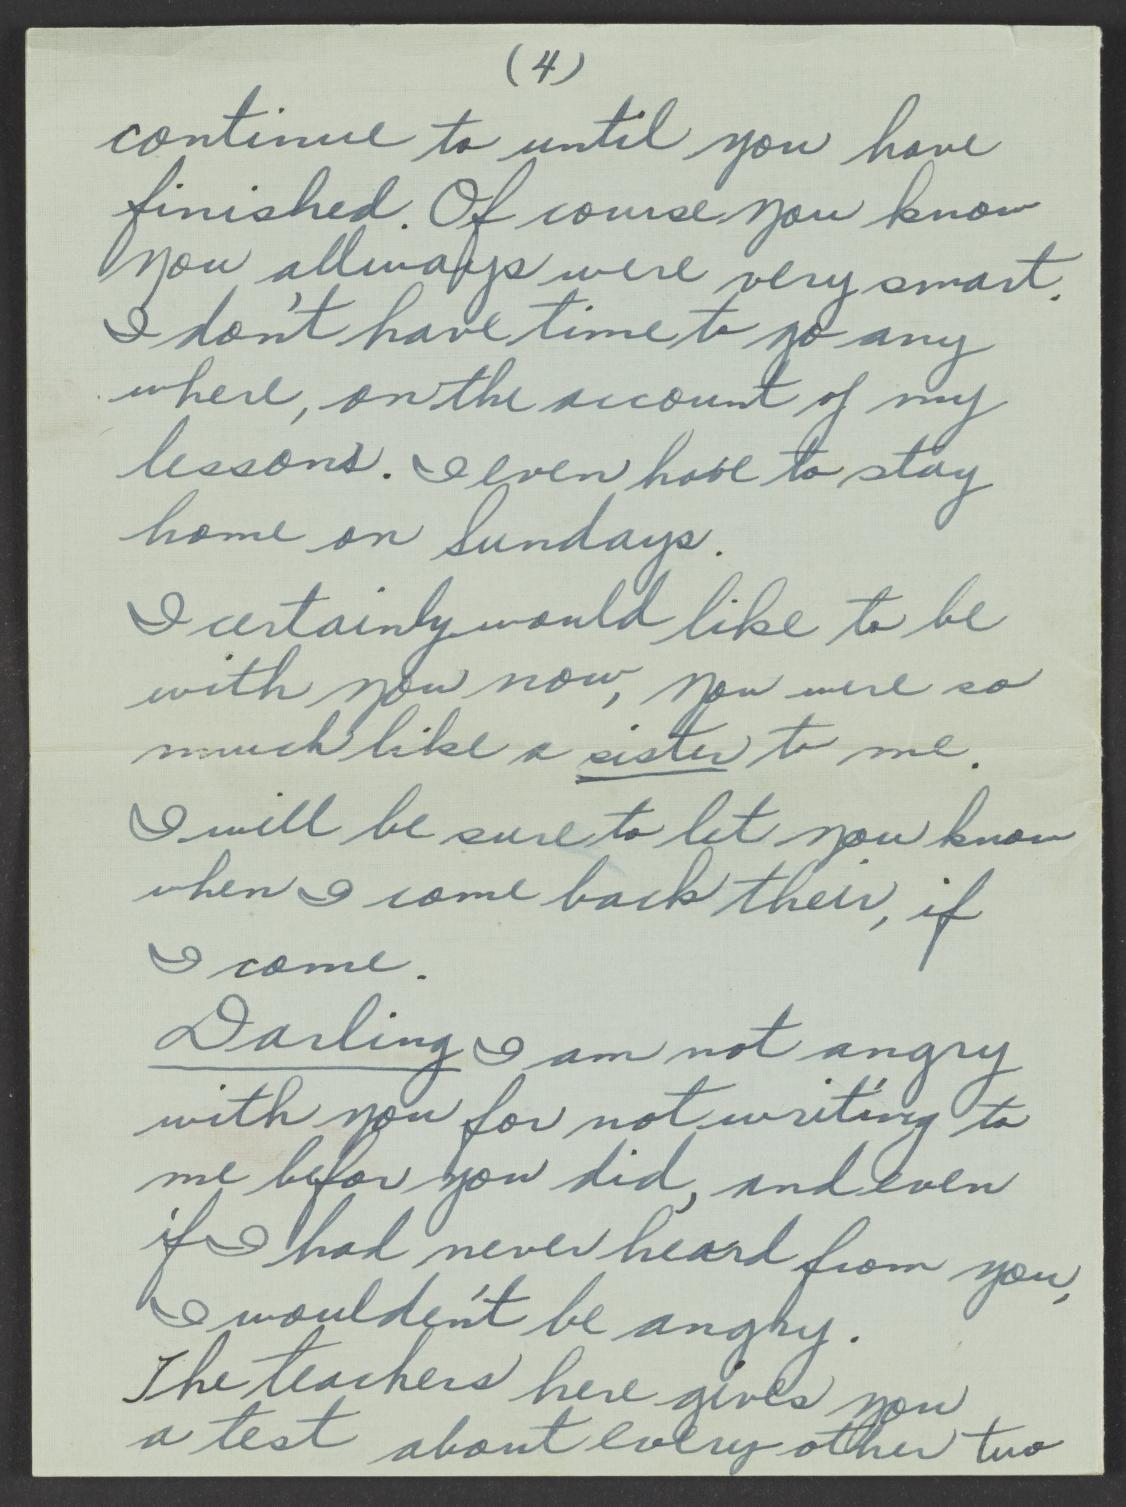 (4)
continue to until you have
finished. Of course you know
you allways were very smart.
I don't have time to go any
where, on the account of my
lessons. I even have to stay
home on Sundays.
I certainly would like to be
with you now, you were so
much like a sister to me.
I will be sure to let you know
when I come back their, if
I come.
Darling I am not angry
with you for not writing to
me befor you did, and even
if I had never heard from you,
I woulden't be angry.
The teachers here gives you
a test about every other two